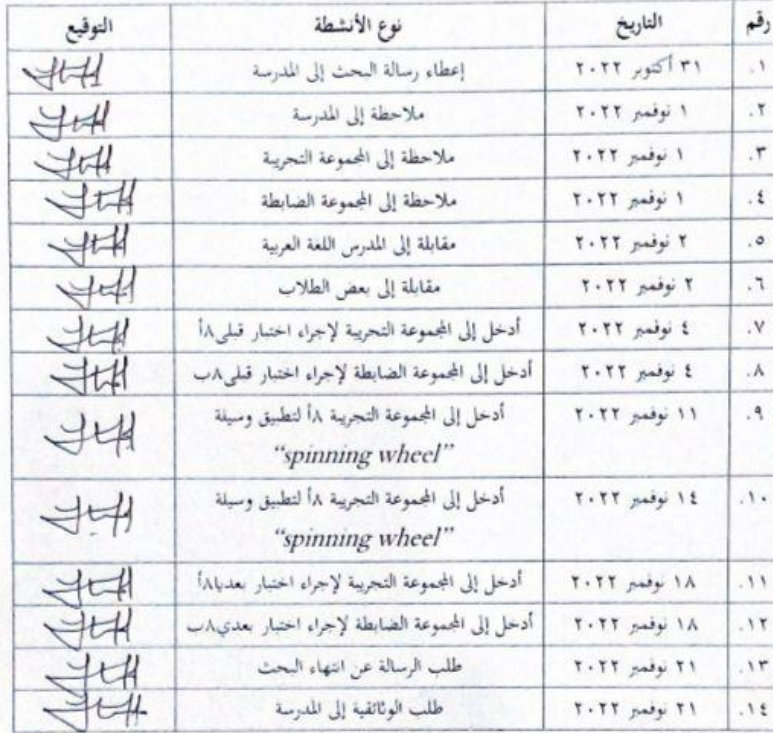 رقم التاريخ نوع الأنشطة التوقيع
١. ٣١ أكتوبر ٢٠٢٢ إعطاء رسالة البحث إلى المدرسة
٢. ١ نوفمبر ٢٠٢٢ ملاحظة إلى المدرسة
٣. ١ نوفمبر ٢٠٢٢ ملاحظة إلى المجموعة التجريبة
٤. ١ نوفمبر ٢٠٢٢ ملاحظة إلى المجموعة الضابطة
٥. ٢ نوفمبر ٢٠٢٢ مقابلة إلى المدرس اللغة العربية
٦. ٢ نوفمبر ٢٠٢٢ مقابلة إلى بعض الطلاب
٧. ٤ نوفمبر ٢٠٢٢ أدخل إلى المجموعة التجريبة لإجراء اختبار قبلى٨أ
٨. ٤ نوفمبر ٢٠٢٢ أدخل إلى المجموعة الضابطة لإجراء اختبار قبلى٨ب
٩. ١١ نوفمبر ٢٠٢٢ أدخل إلى المجموعة التجريبة ٨أ لتطبيق وسيلة
“spinning wheel”
١٠. ١٤ نوفمبر ٢٠٢٢ أدخل إلى المجموعة التجريبة ٨أ لتطبيق وسيلة
“spinning wheel”
١١. ١٨ نوفمبر ٢٠٢٢ أدخل إلى المجموعة التجريبة لإجراء اختبار بعديا٨أ
١٢. ١٨ نوفمبر ٢٠٢٢ أدخل إلى المجموعة الضابطة لإجراء اختبار بعدي٨ب
١٣. ٢١ نوفمبر ٢٠٢٢ طلب الرسالة عن انتهاء البحث
١٤. ٢١ نوفمبر ٢٠٢٢ طلب الوثائقية إلى المدرسة